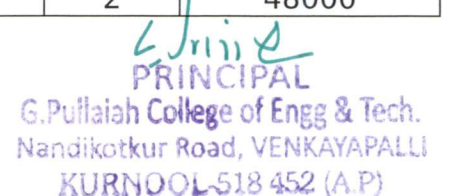 2 48000
PRINCIPAL
G.Pullaiah College of Engg & Tech.
Nandikotkur Road, VENKAYAPALLI
KURNOOL-518 452 (A.P)